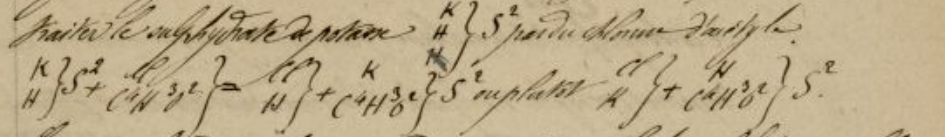 traiter le sulphydrate de potasse K H } S² par du chlorure d'acétyle.
K H } S² + Cl C⁴H³O² } = Cl H } + K C⁴H³O² } S² ou plutôt Cl K } + H C⁴H³O² } S².